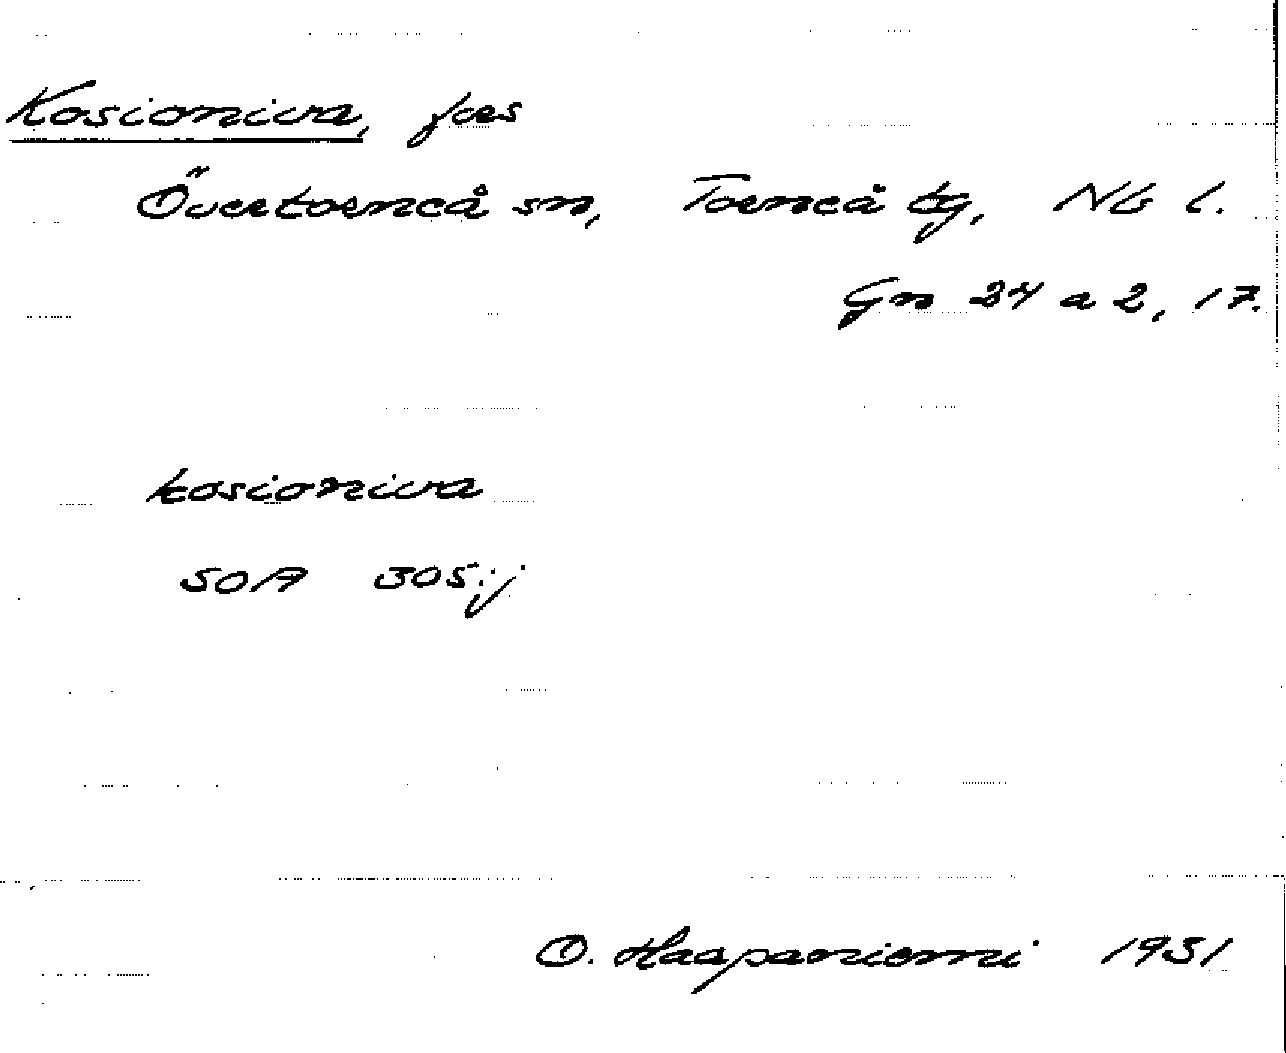 Kosioniva, fors
Övertorneå sn, Torneå tg, Nb l.
Gn 24 a 2, 17.
kosioniva
SOA 305:j
O. Haapaniemi 1931